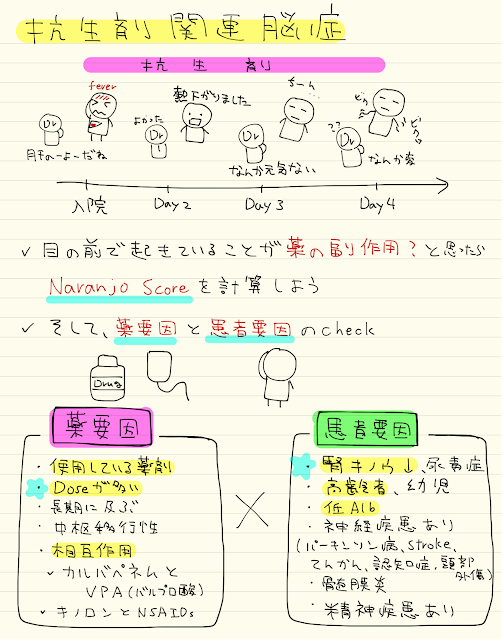 抗生剤関連脳症
抗 生 剤
fever
Dr
肝のーよーだね
よかった
Dr
熱下がりました
ちーん
Dr
なんか元気ない
ビクッ
ビクッ
??
Dr
なんか変
入院 Day2 Day3 Day4
✓ 目の前で起きていることが薬の副作用?と思ったら
Naranjo Scoreを計算しよう
✓ そして、薬要因と患者要因のcheck
Drug
薬要因
・使用している薬剤
・Doseが多い
・長期に及ぶ
・中枢移行性
・相互作用
✓カルバペネムと
VPA(バルプロ酸)
✓キノロンとNSAIDs
×
患者要因
・腎キノウ↓、尿毒症
・高齢者、幼児
・低Alb
・神経疾患あり
(パーキンソン病、stroke、
てんかん、認知症、頭部外傷)
・髄膜炎
・精神疾患あり